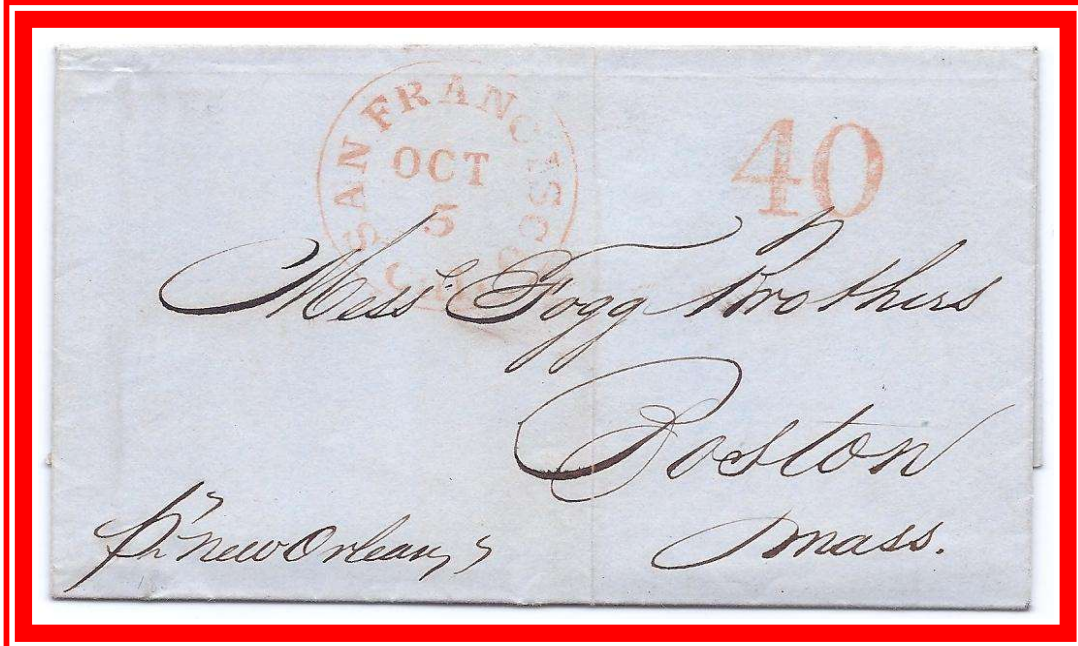 SAN FRANCISCO
OCT
5
40
Mess.rs Fogg Brothers
Boston
Mass.
pr New Orleans